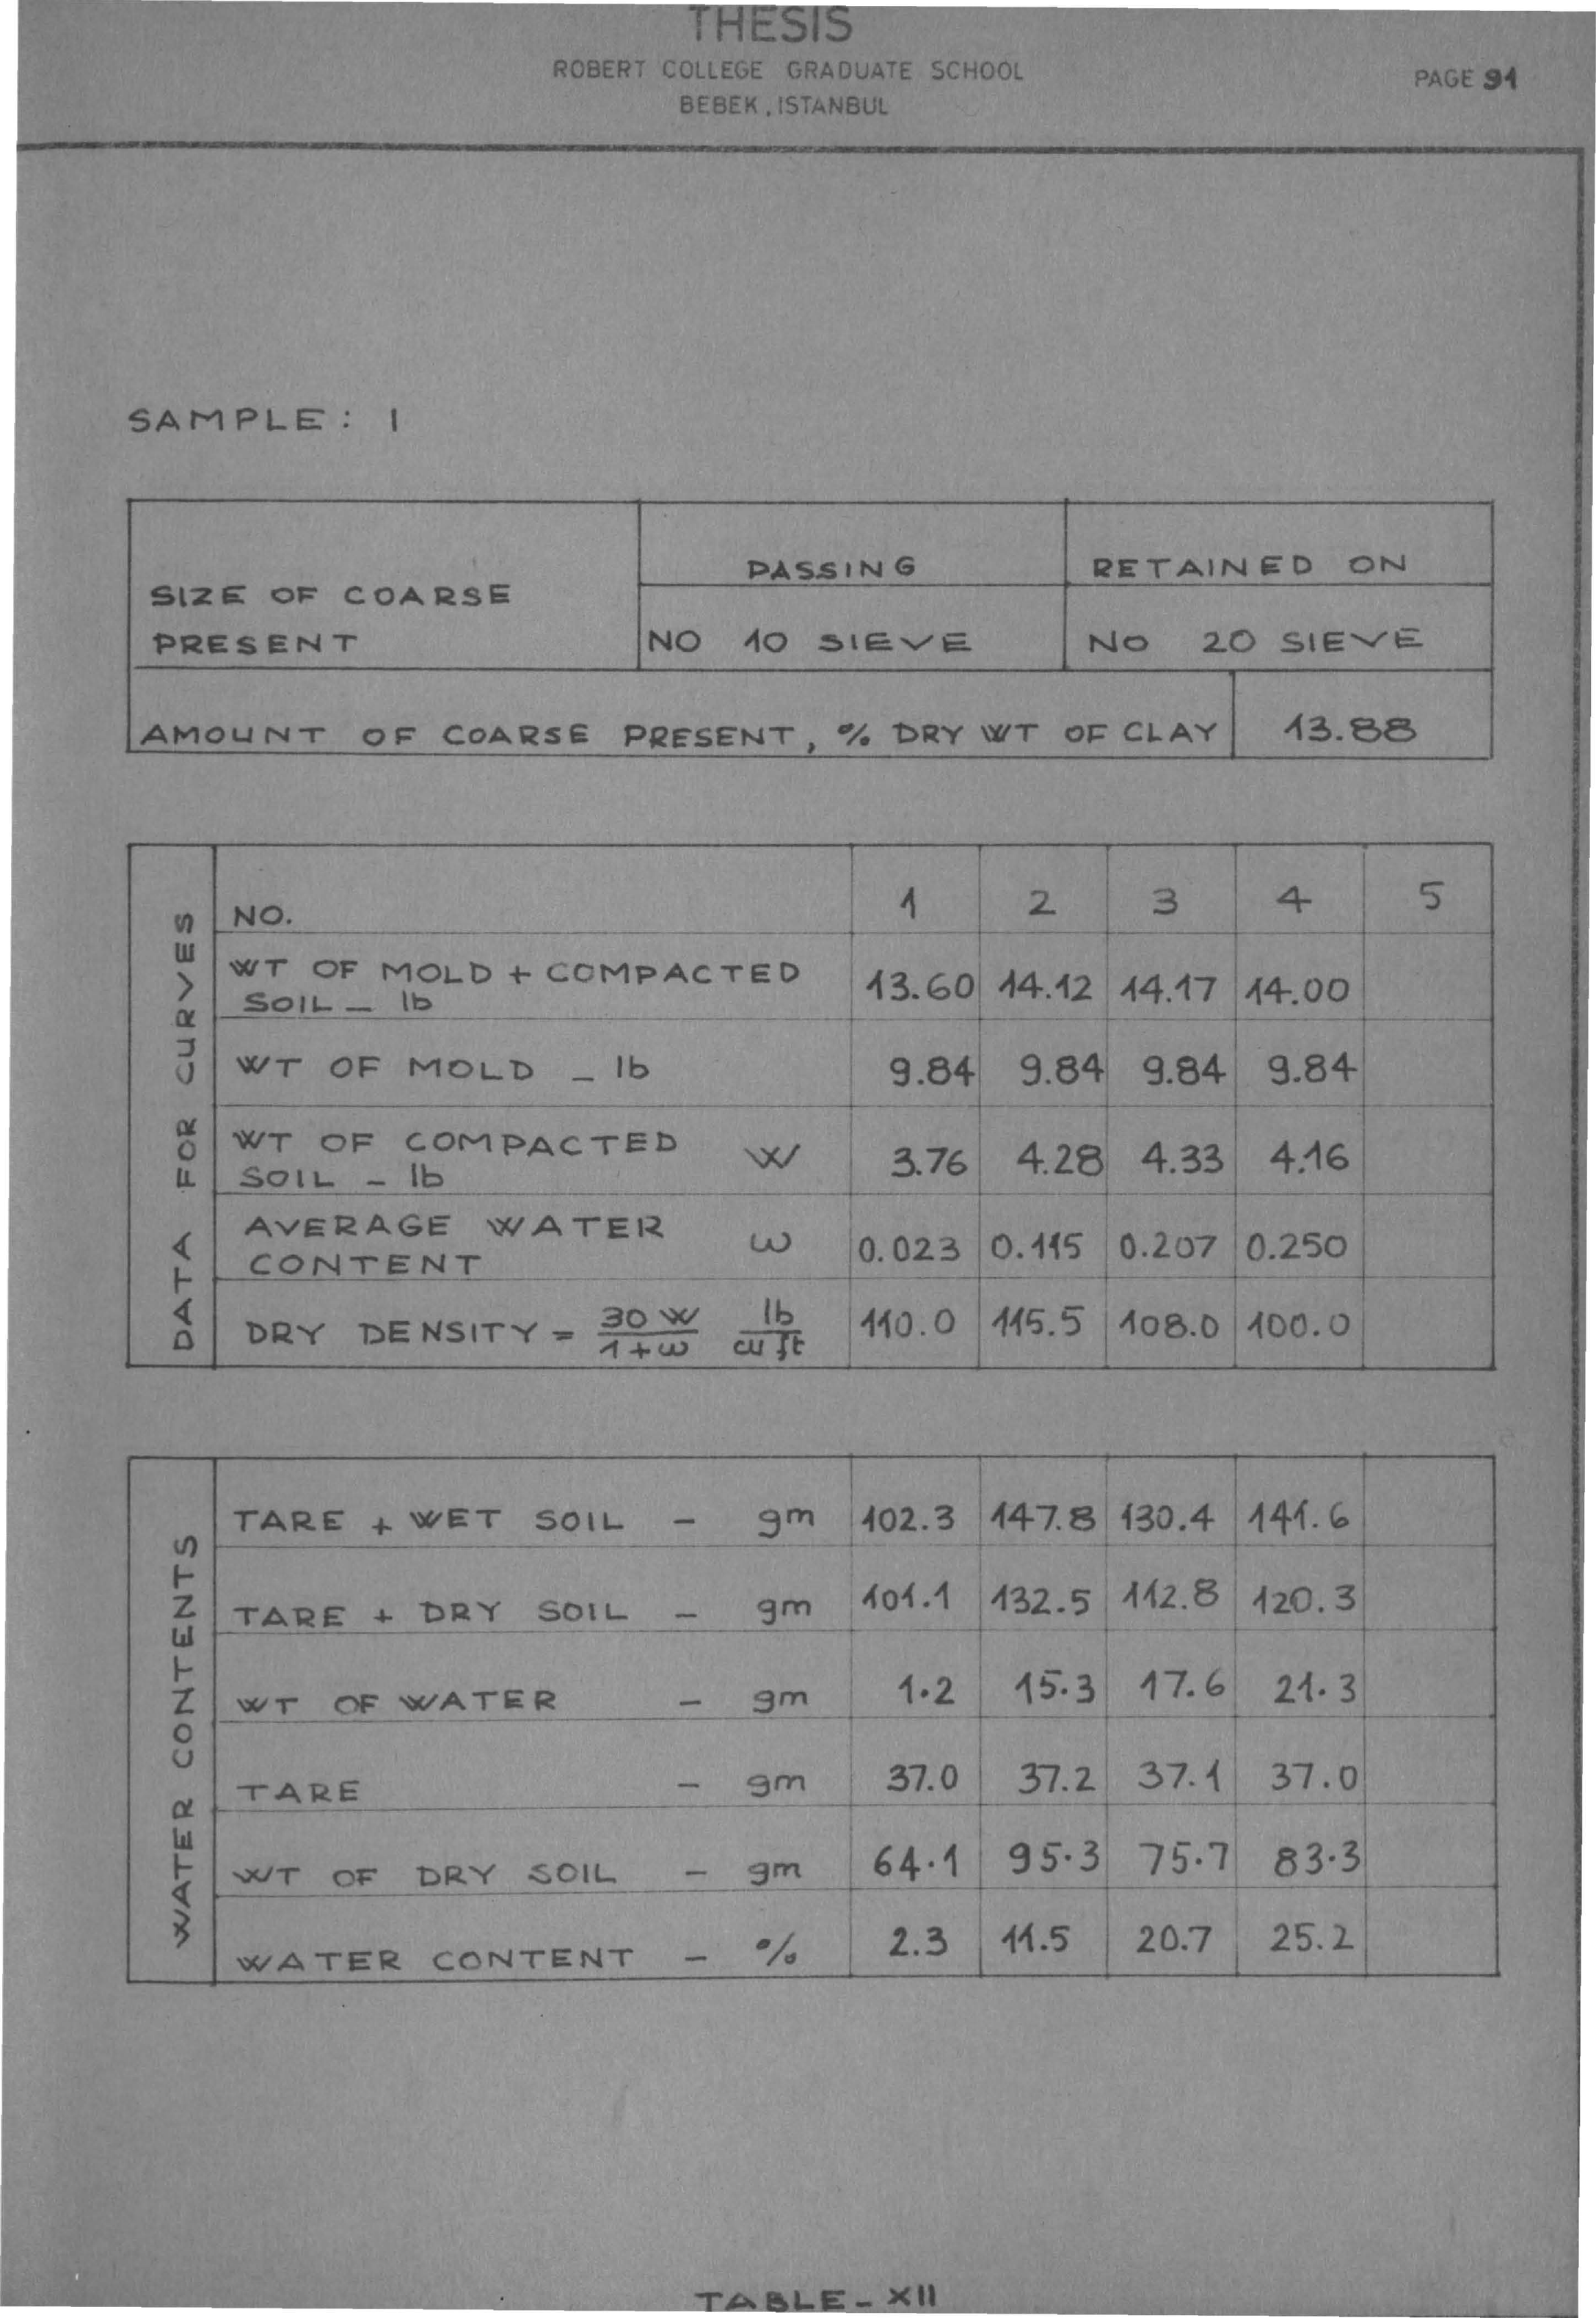 THESIS
ROBERT COLLEGE GRADUATE SCHOOL
BEBEK, ISTANBUL
PAGE 91
SAMPLE: I
SIZE OF COARSE
PRESENT
PASSING
RETAINED ON
NO 10 SIEVE
NO 20 SIEVE
AMOUNT OF COARSE PRESENT, % DRY WT OF CLAY 13.88
DATA FOR CURVES
NO. 1 2 3 4 5
WT OF MOLD + COMPACTED
SOIL - lb 13.60 14.12 14.17 14.00
WT OF MOLD - lb 9.84 9.84 9.84 9.84
WT OF COMPACTED
SOIL - lb W 3.76 4.28 4.33 4.16
AVERAGE WATER
CONTENT ω 0.023 0.115 0.207 0.250
DRY DENSITY = 30 W / 1+ω lb / cu ft 110.0 115.5 108.0 100.0
WATER CONTENTS
TARE + WET SOIL - gm 102.3 147.8 130.4 141.6
TARE + DRY SOIL - gm 101.1 132.5 112.8 120.3
WT OF WATER - gm 1.2 15.3 17.6 21.3
TARE - gm 37.0 37.2 37.1 37.0
WT OF DRY SOIL - gm 64.1 95.3 75.7 83.3
WATER CONTENT - % 2.3 11.5 20.7 25.2
TABLE - XII